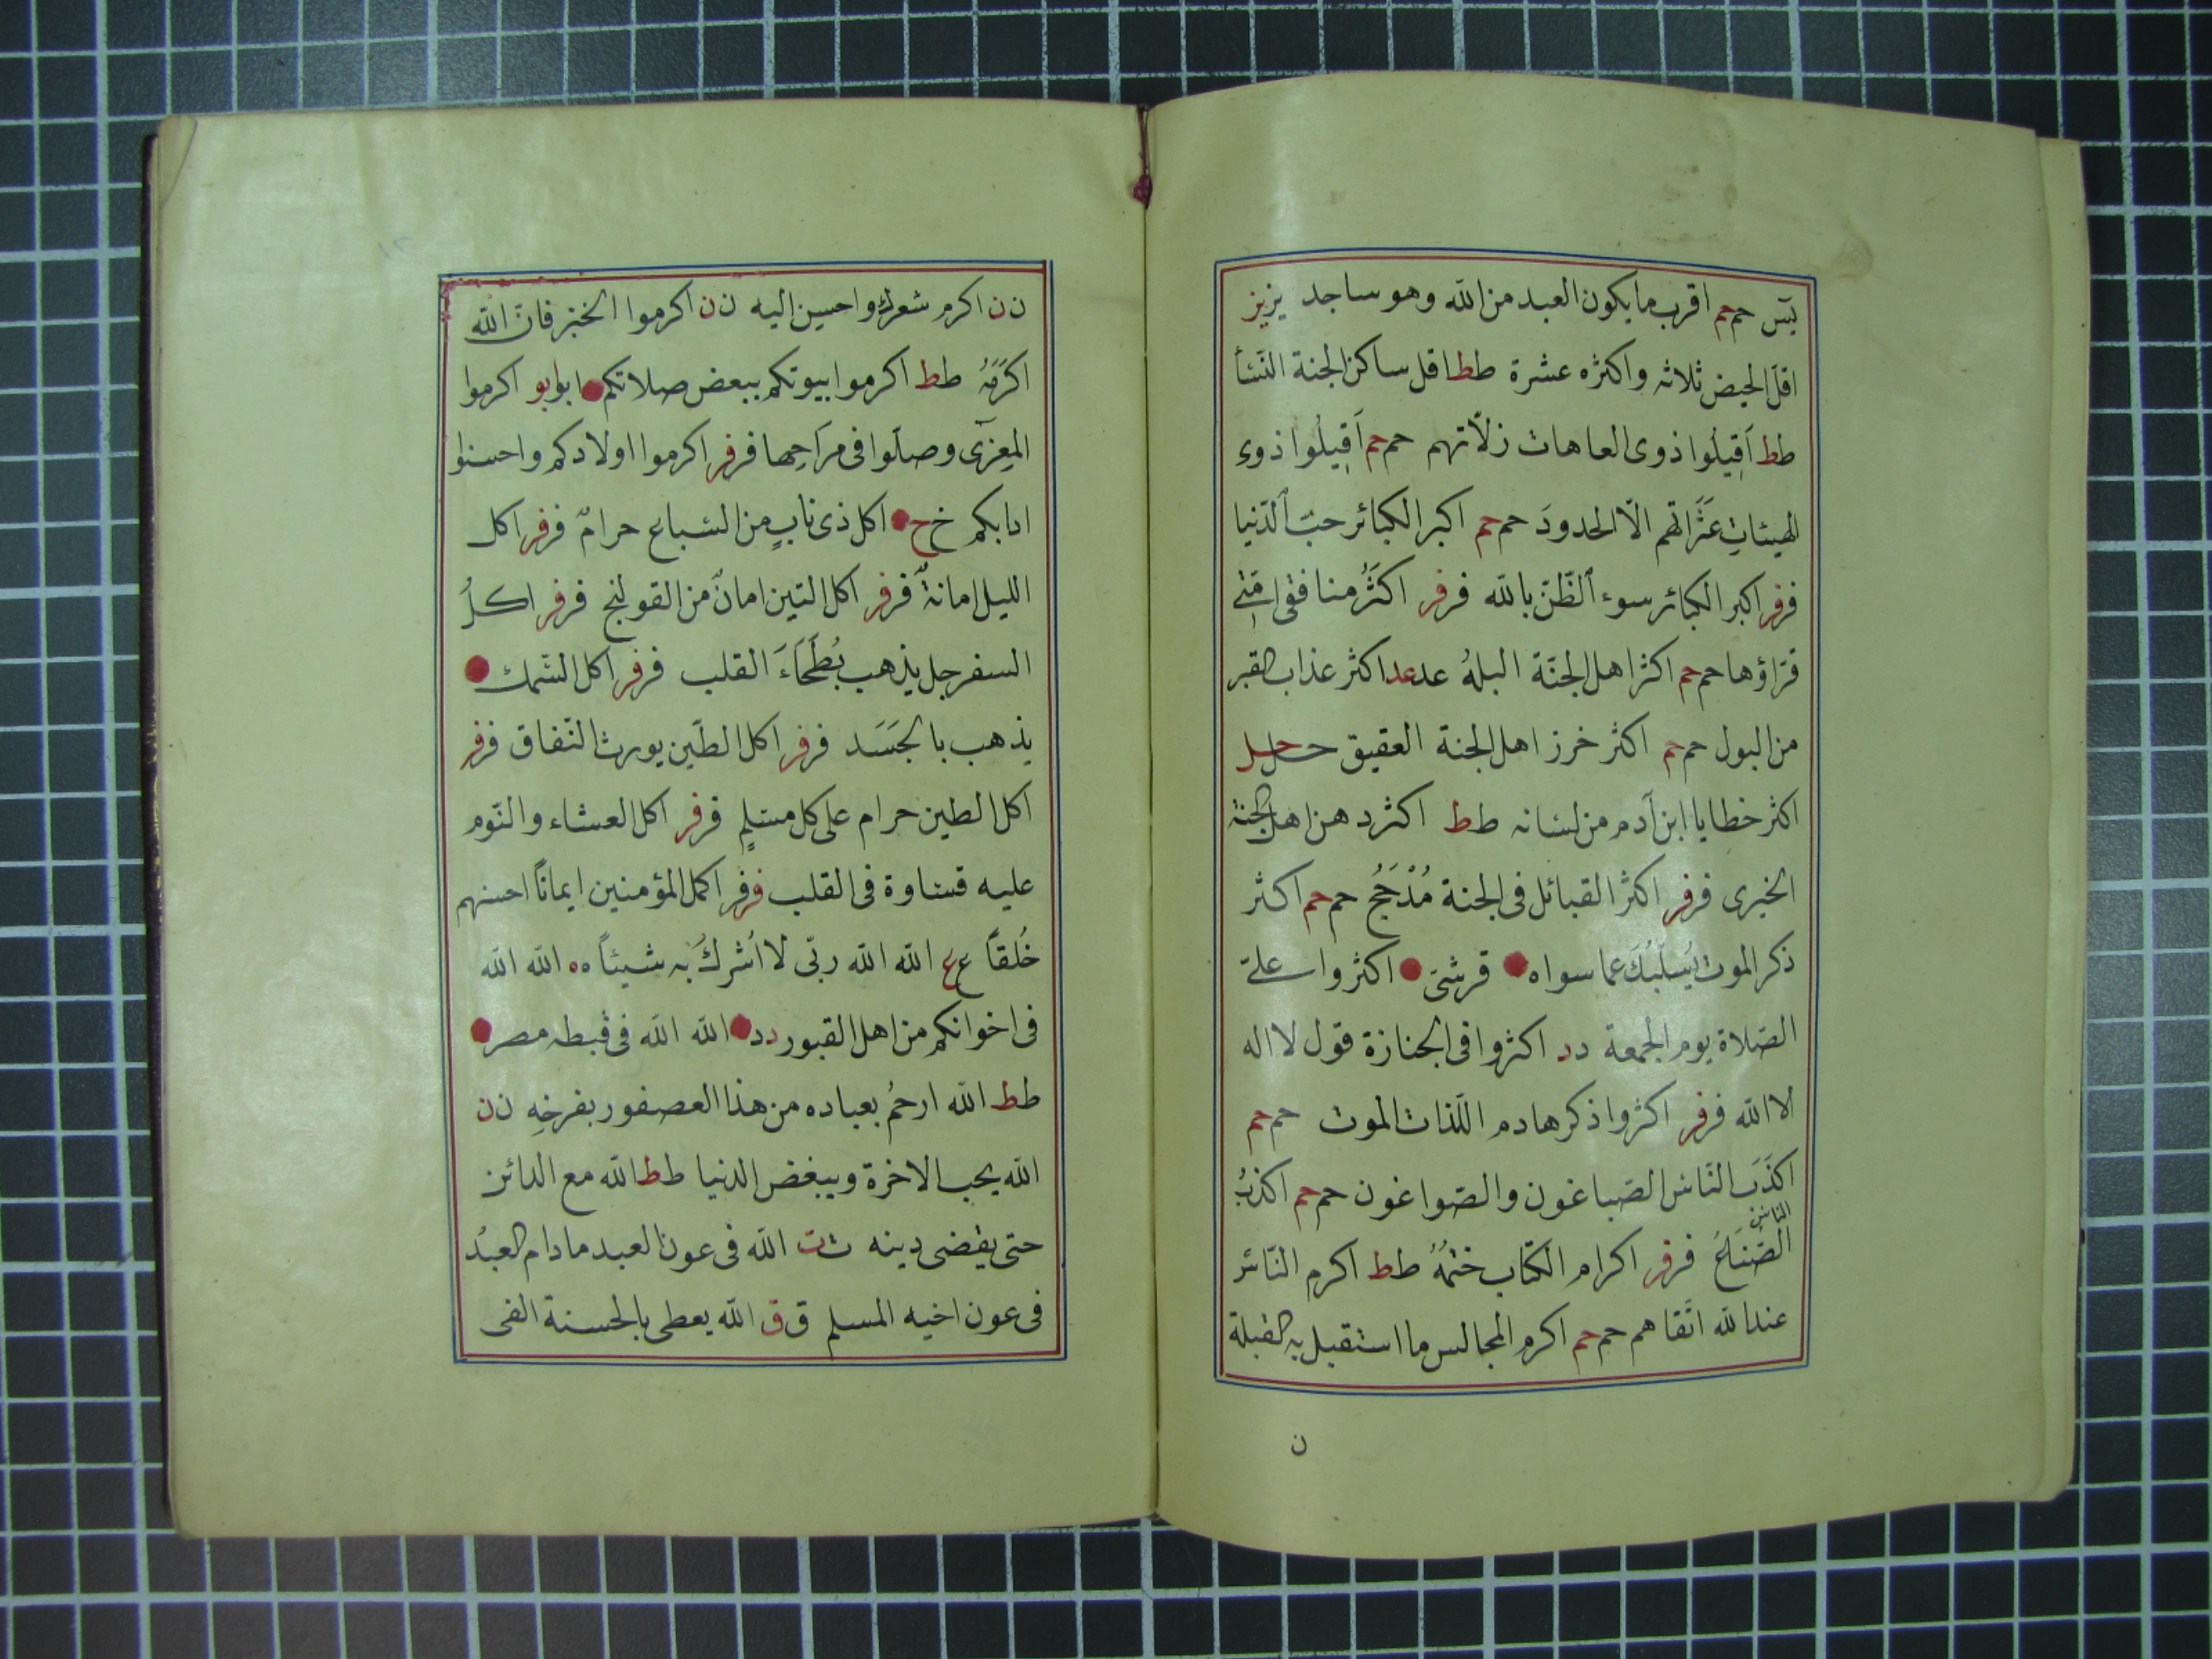 يس حم حم اقرب ما يكون العبد من الله وهو ساجد يز يز
اقل الحيض ثلاثه واكثره عشرة ط ط اقل ساكن الجنة النسأ
ط ط اَقِيلُوا ذوى العاهات زلّاتهم حم حم اَقِيلُوا ذوى
الهيئاتِ عَثَراتهم الّا الحدودَ حم حم اكبر الكبائر حبّ الدّنيا
فر فر اكبر الكبائر سوء الظّنّ بالله فر فر اكثَرُ منافقى امّتى
قرّاؤها حم حم اكثر اهل الجنّة البلهُ عد عد اكثر عذاب القبر
من البول حم حم اكثر خرز اهل الجنة العقيق حل حل
اكثر خطايا ابن آدم من لسانه ط ط اكثر دهن اهل الجنة
الخيرى فر فر اكثر القبائل فى الجنة مُذْحَجُ حم حم اكثر
ذكر الموت يُسلبُكَ عما سواه قرشىّ اكثروا علىّ
الصّلاة يوم الجمعة د د اكثروا فى الجنازة قول لا اله
الا الله فر فر اكثروا ذكر هادم اللّذات الموت حم حم
اكذَبَ النّاس الصّباغون والصّواغون حم حم اكذبُ
الناس
الصّنَاعُ فر فر اكرام الكتاب ختمُهُ ط ط اكرم النّاس
عند الله اتقاهم حم حم اكرم المجالس ما استقبل به القبلة
ن
ن ن اكرم شعرك واحسن اليه ن ن اكرموا الخبز فان الله
اكرَمَهُ ط ط اكرموا بيوتكم ببعض صلاتكم ابو ابو اكرموا
المعزى وصلّوا فى مراحها فر فر اكرموا اولادكم واحسنوا
ادابكم خ خ اكل ذى نابٍ من السباع حرامٌ فر فر اكل
الليل امانةٌ فر فر اكل التين امانٌ من القولنج فر فر اكلُ
السفرجل يذهب بُطَخَاءَ القلب فر فر اكل السّمك
يذهب بالجَسَد فر فر اكل الطّين يورث النّفاق فر فر
اكل الطين حرام على كل مسلمٍ فر فر اكل العشاء والنّوم
عليه قساوة فى القلب فر فر اكمل المؤمنين ايماناً احسنهم
خُلقاً ع ع الله الله ربّى لا اُشركُ به شيئاً ه ه الله الله
فى اخوانكم من اهل القبور د د الله الله فى قبطه مصر
ط ط الله ارحمُ بعباده من هذا العصفور بفرخِه ن ن
الله يحب الاخرة ويبغض الدنيا ط ط الله مع الدائن
حتى يقضى دينه ت ت الله فى عون العبد ما دام العبدُ
فى عون اخيه المسلم ق ق الله يعطى بالحسنة الفى